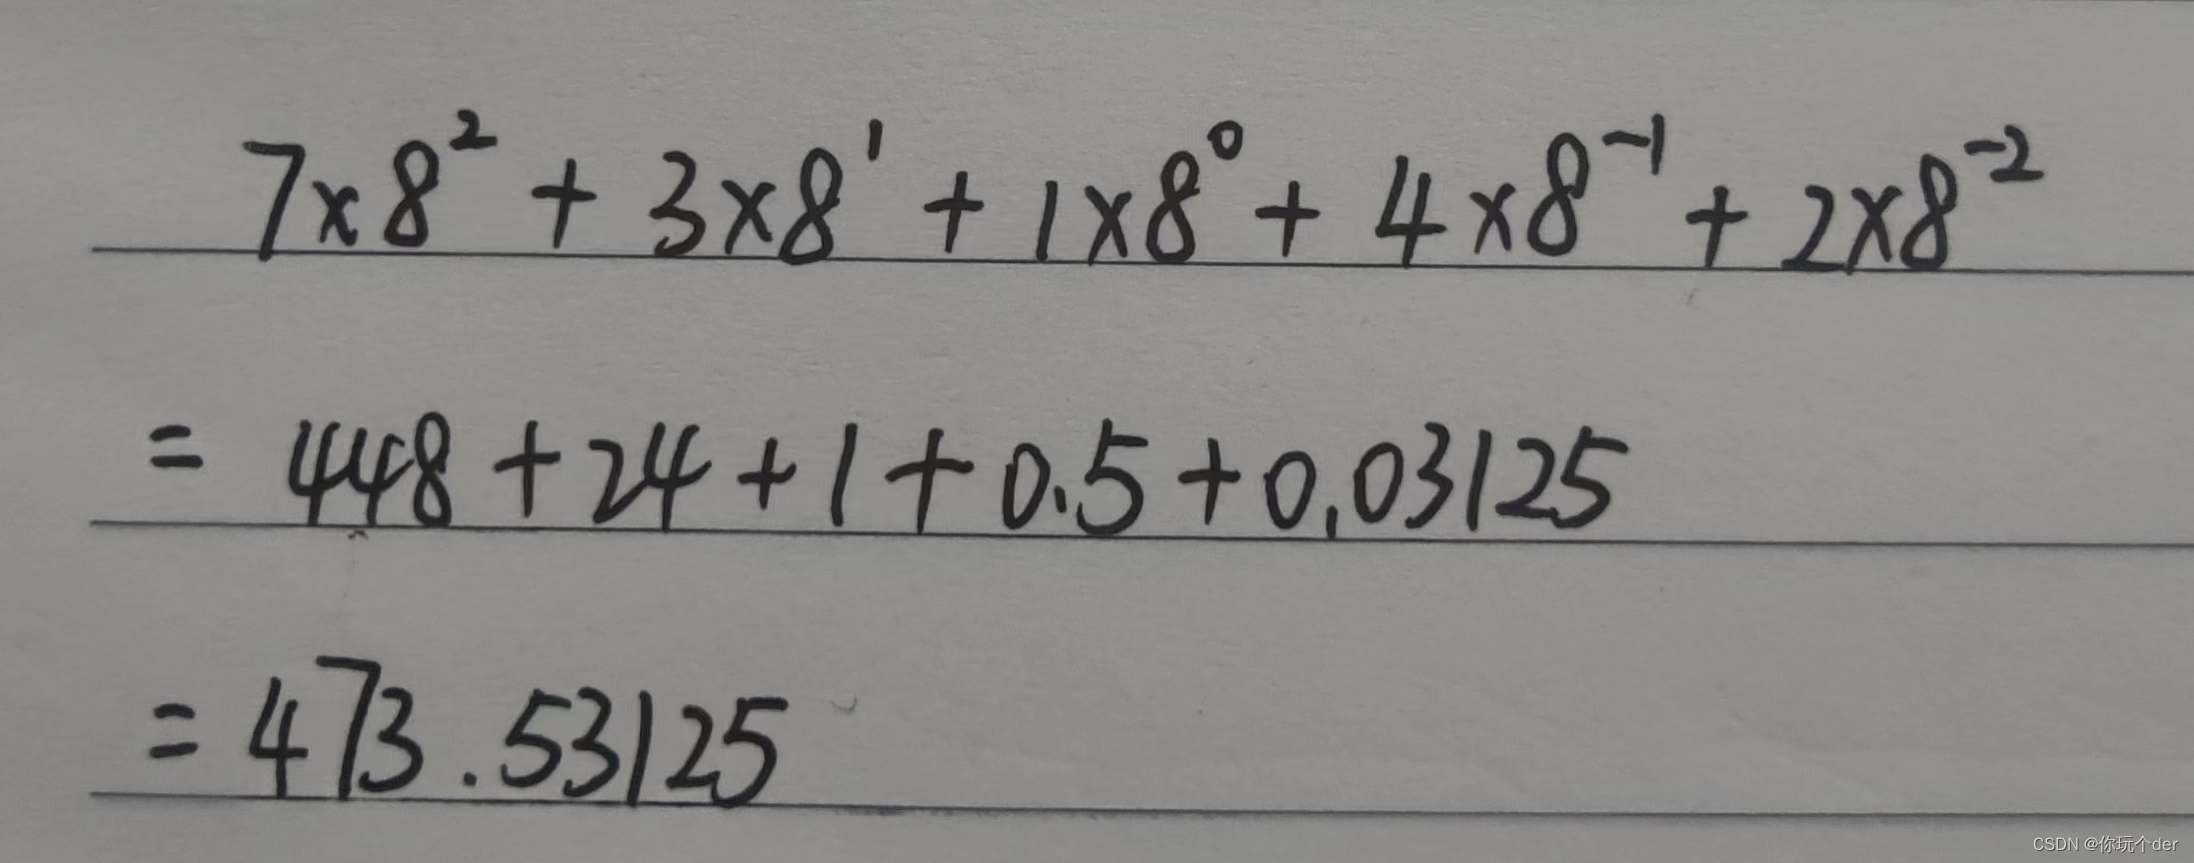 7×8² + 3×8¹ + 1×8⁰ + 4×8⁻¹ + 2×8⁻²
= 448 + 24 + 1 + 0.5 + 0.03125
= 473.53125
CSDN @你玩个der